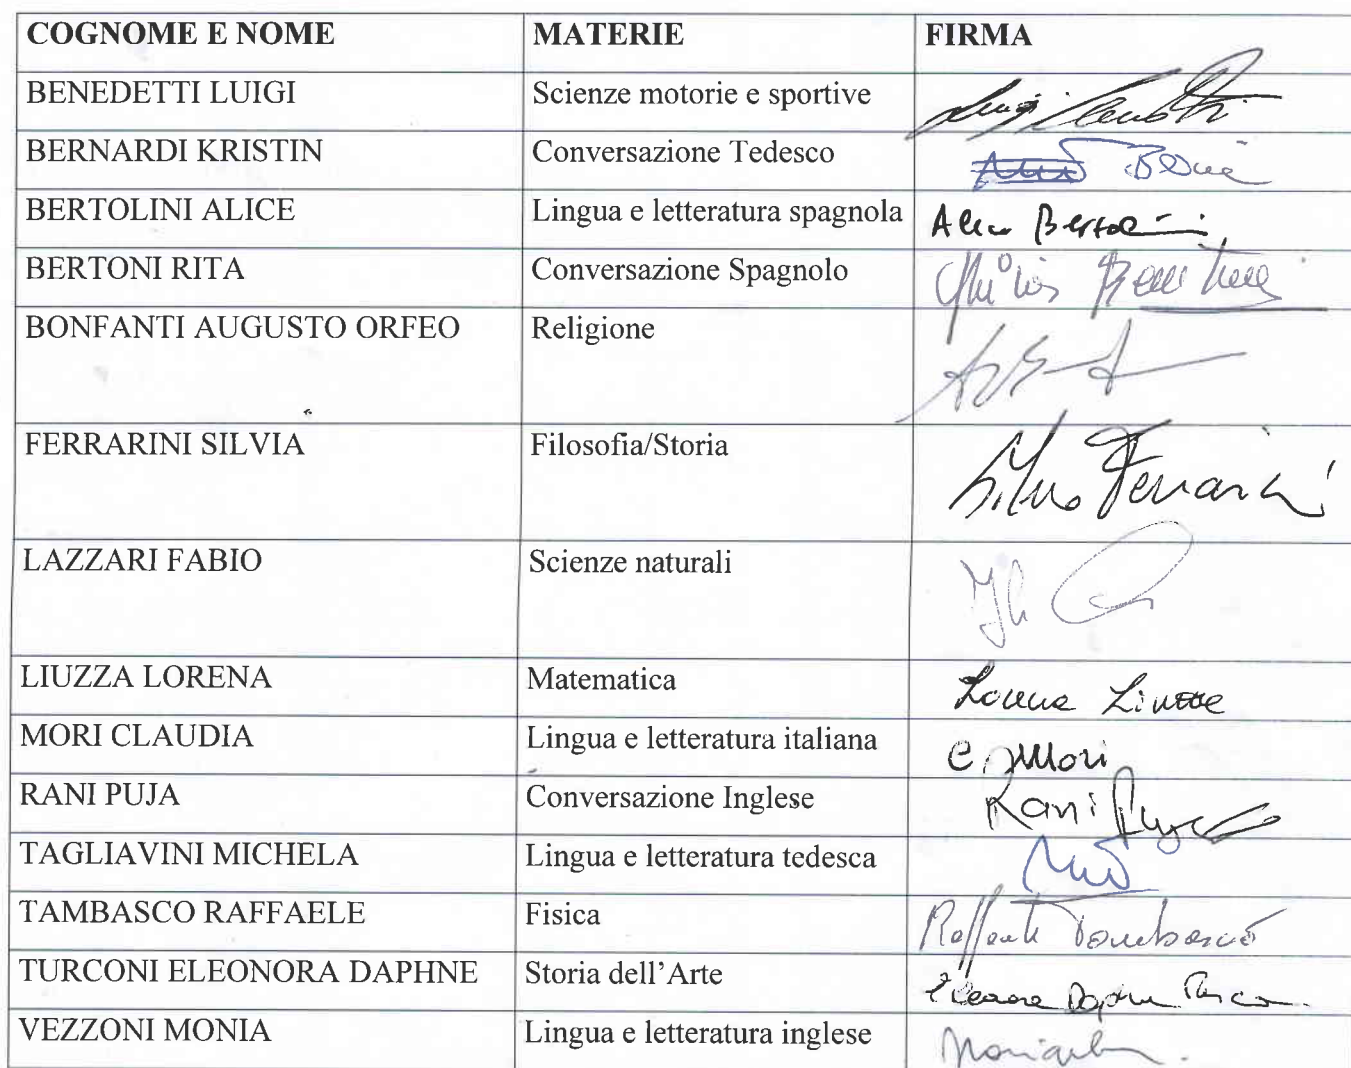 COGNOME E NOME MATERIE FIRMA
BENEDETTI LUIGI Scienze motorie e sportive Luigi
BERNARDI KRISTIN Conversazione Tedesco
BERTOLINI ALICE Lingua e letteratura spagnola Alice Bertolini
BERTONI RITA Conversazione Spagnolo
BONFANTI AUGUSTO ORFEO Religione
FERRARINI SILVIA Filosofia/Storia Silvia Ferrarini
LAZZARI FABIO Scienze naturali
LIUZZA LORENA Matematica Lorena Liuzza
MORI CLAUDIA Lingua e letteratura italiana C. Mori
RANI PUJA Conversazione Inglese Rani Puja
TAGLIAVINI MICHELA Lingua e letteratura tedesca
TAMBASCO RAFFAELE Fisica Raffaele Tambasco
TURCONI ELEONORA DAPHNE Storia dell'Arte Eleonora Daphne Turconi
VEZZONI MONIA Lingua e letteratura inglese